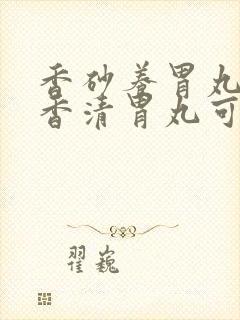 香砂养胃丸
香清胃丸可
翟巍